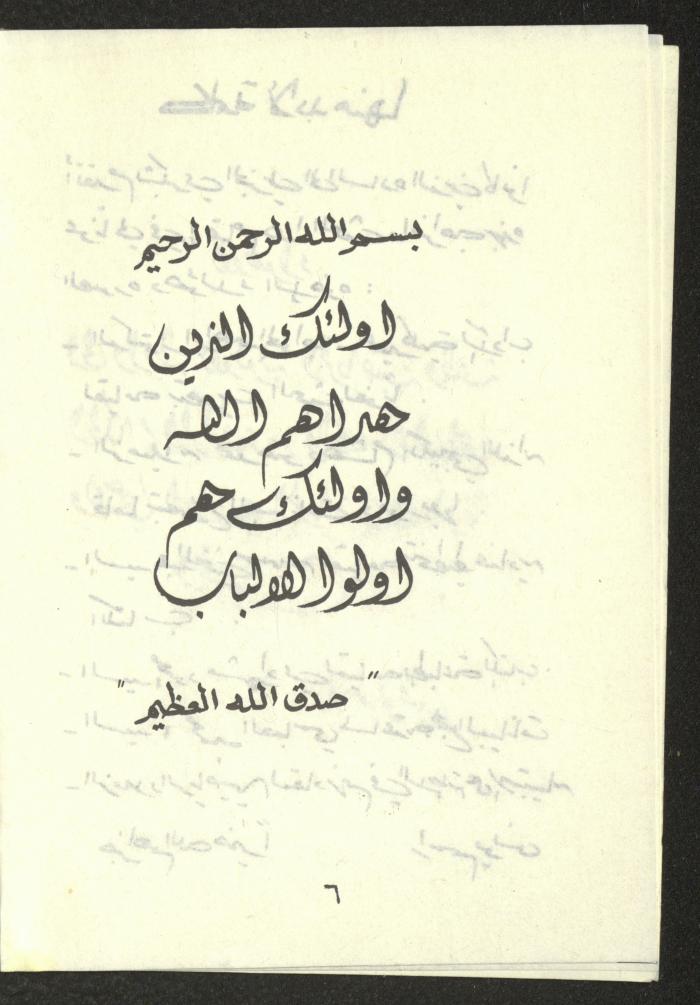 بسم الله الرحمن الرحيم
اولئك الذين
هداهم الله
واولئك هم
اولوا الالباب
"صدق الله العظيم"
٦